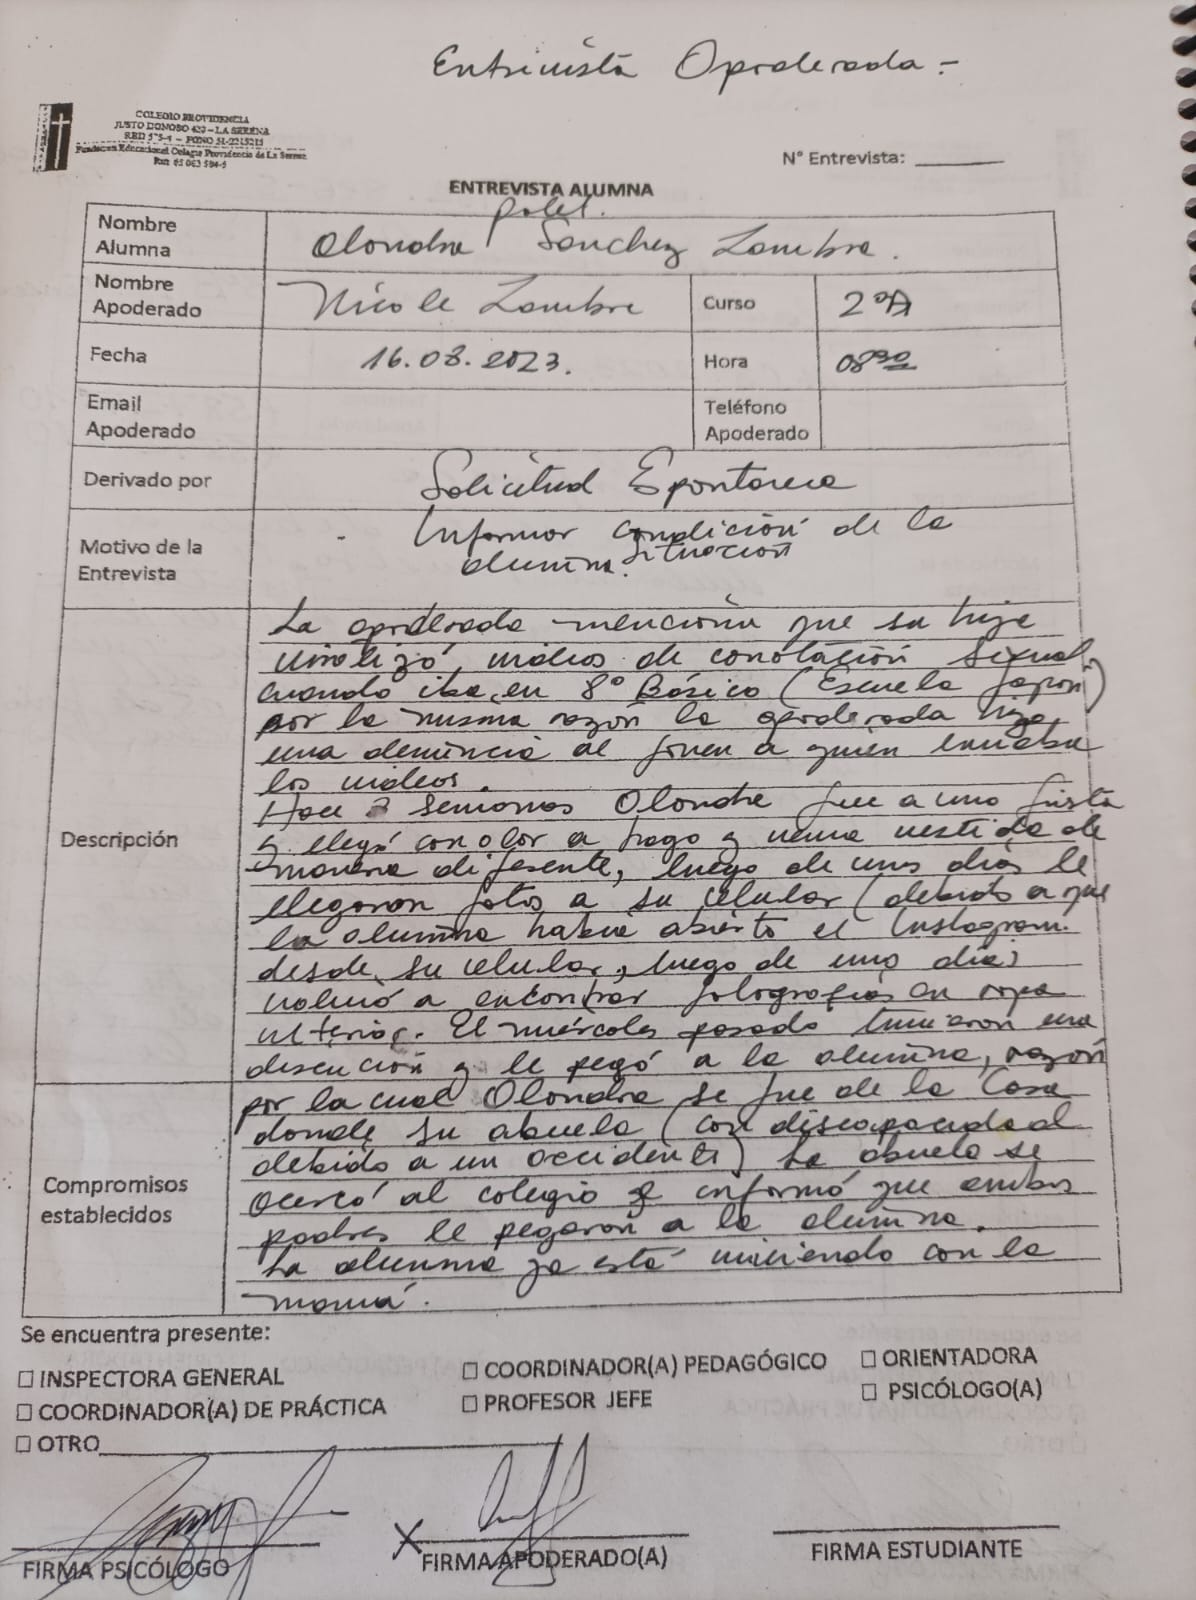 Entrevista Apoderada.-
COLEGIO PROVIDENCIA
JUSTO DONOSO 420 - LA SERENA
RBD 575-4 - FONO 51-2215215
Fundacion Educacional Colegio Providencia de La Serena
Rut: 65 063 594-5
N° Entrevista:
ENTREVISTA ALUMNA
Nombre Alumna
Polet.
Alondra Sanchez Zambra.
Nombre Apoderado
Nicole Zambra
Curso
2°A
Fecha
16.08.2023.
Hora
08:30
Email Apoderado
Teléfono Apoderado
Derivado por
Solicitud Espontanea
Motivo de la Entrevista
- Informar condición de la
alumna. Situación
Descripción
La apoderada menciona que su hija
videos de conotación sexual
cuando iba en 8° Básico (Escuela Japon)
por la misma razón la apoderada hizo
una denuncia al joven a quién enviaba
los videos.
Hace semanas Alondra fue a una fiesta
y llegó con olor a y venia vestida de
manera diferente, luego de unos días le
llegaron fotos a su celular (debido a que
la alumna había abierto el Instagram
desde su celular, luego de unos días
volvió a encontrar fotografías en ropa
interior. El miércoles pasado tuvieron una
discución y le pegó a la alumna, razón
Compromisos establecidos
por la cual Alondra se fue de la Casa
donde su abuela (con discapacidad
debido a un accidente) La abuela se
acercó al colegio e informó que ambos
padres le pegaron a la alumna.
La alumna ya está viviendo con la
mamá.
Se encuentra presente:
☐ INSPECTORA GENERAL
☐ COORDINADOR(A) PEDAGÓGICO
☐ ORIENTADORA
☐ COORDINADOR(A) DE PRÁCTICA
☐ PROFESOR JEFE
☐ PSICÓLOGO(A)
☐ OTRO
X
FIRMA PSICÓLOGO
FIRMA APODERADO(A)
FIRMA ESTUDIANTE